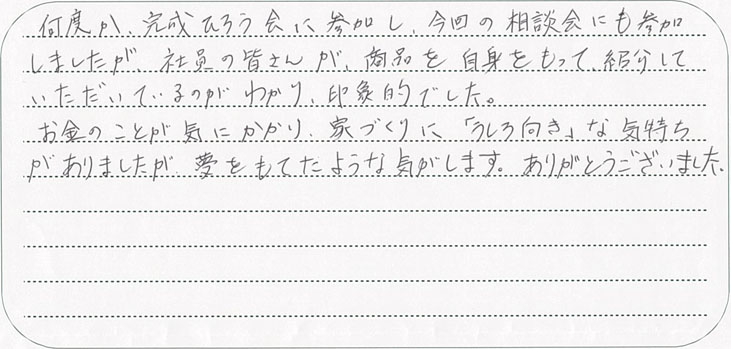 何度か、完成ひろう会に参加し、今回の相談会にも参加
しましたが、社員の皆さんが、商品を自身をもって、紹介して
いただいているのがわかり、印象的でした。
お金のことが気にかかり、家づくりに「うしろ向き」な気持ち
がありましたが、夢をもてたような気がします。ありがとうございました。